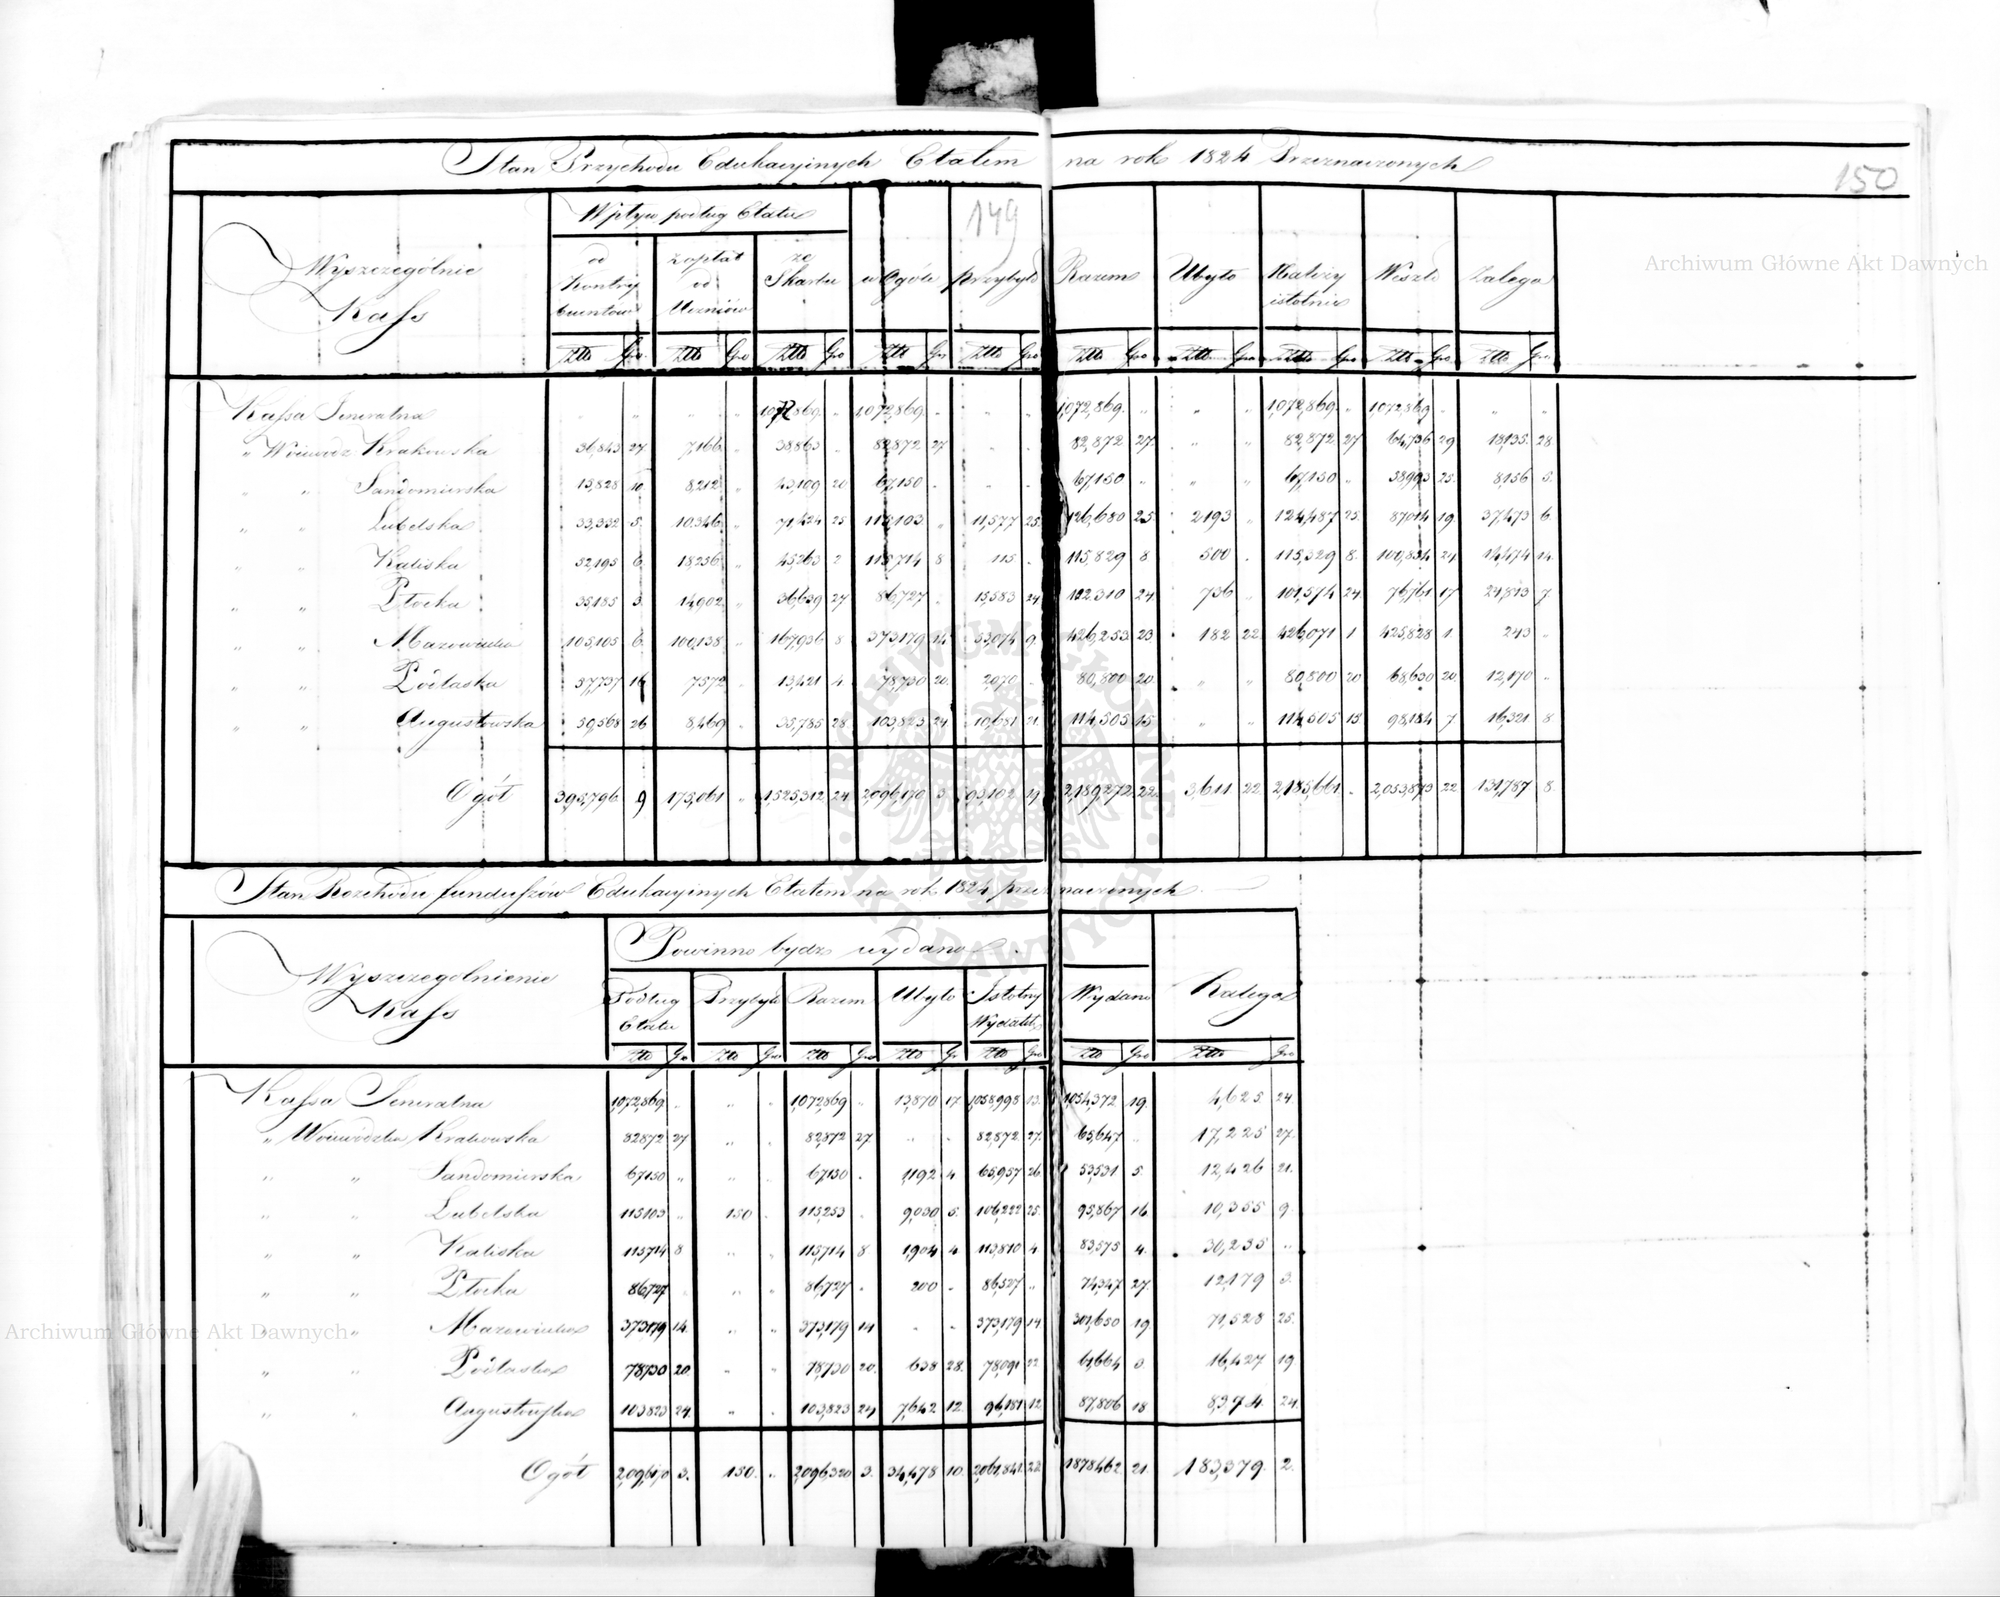 Stan Przychodu Edukacyjnych Etatem na rok 1824 Przeznaczonych
150
149
Wpływ podług Etatu
Wyszczególnie Kass
od Kontrybuentów | zapłat od Uczniów | ze Skarbu | w Ogóle | przybyło | Razem | Ubyło | Należy istotnie | Weszło | Zalega
Złto Gro | Złto Gro | Złto Gro | Złto Gro | Złto Gro | Złto Gro | Złto Gro | Złto Gro | Złto Gro | Złto Gro
Kassa Jeneralna | „ „ | „ „ | 1072,869 „ | 1,072,869 „ | „ „ | 1,072,869 „ | „ „ | 1,072,869 „ | 1,072,869 „ | „ „
„ Woiewódz Krakowska | 36,843 27 | 7,166 „ | 38,863 „ | 82,872 27 | „ „ | 82,872 27 | „ „ | 82,872 27 | 64,736 29 | 18,135 28
„ „ Sandomierska | 15,828 10 | 8,212 „ | 43,109 20 | 67,150 „ | „ „ | 67,150 „ | „ „ | 67,150 „ | 58,993 25 | 8,156 5
„ „ Lubelska | 33,332 5 | 10,346 „ | 71,424 25 | 115,103 „ | 11,577 25 | 126,680 25 | 2193 „ | 124,487 25 | 87,014 19 | 37,473 6
„ „ Kaliska | 52,195 6 | 18,256 „ | 45,263 2 | 115,714 8 | 115 „ | 115,829 8 | 500 „ | 115,329 8 | 100,854 24 | 14,474 14
„ „ Płocka | 35,185 3 | 14,902 „ | 36,639 27 | 86,727 „ | 15,583 24 | 102,310 24 | 736 „ | 101,574 24 | 76,761 17 | 24,813 7
„ „ Mazowiecka | 105,105 6 | 100,138 „ | 167,936 8 | 373,179 14 | 53,074 9 | 426,253 23 | 182 22 | 426,071 1 | 425,828 1 | 243 „
„ „ Podlaska | 57,737 16 | 7572 „ | 13,421 4 | 78,730 20 | 2,070 „ | 80,800 20 | „ „ | 80,800 20 | 68,630 20 | 12,170 „
„ „ Augustowska | 59,568 26 | 8,469 „ | 35,785 28 | 103,823 24 | 10,681 21 | 114,505 15 | „ „ | 114,505 15 | 98,184 7 | 16,321 8
Ogół | 395,796 9 | 175,061 „ | 1,525,312 24 | 2,096,170 3 | 93,102 19 | 2,189,272 22 | 3,611 22 | 2,185,661 „ | 2,053,873 22 | 131,787 8
Stan Rozchodu funduszów Edukacyjnych Etatem na rok 1824 przeznaczonych
Powinno bydz wydano
Wyszczegolnienie Kass
Podług Etatu | Przybyło | Razem | Ubyło | Istotny Wydatek | Wydano | Zalega
Złto Gro | Złto Gro | Złto Gro | Złto Gr | Złto Gro | Złto Gro | Złto Gro
Kassa Jeneralna | 1,072,869 „ | „ „ | 1,072,869 „ | 13,870 17 | 1,058,998 13 | 1,054,372 19 | 4,625 24
„ Woiewódzka Krakowska | 82872 27 | „ „ | 82,872 27 | „ „ | 82,872 27 | 65,647 „ | 17,225 27
„ „ Sandomierska | 67150 „ | „ „ | 67,150 „ | 1,192 4 | 65,957 26 | 53,531 5 | 12,426 21
„ „ Lubelska | 115103 „ | 150 „ | 115,253 „ | 9,030 5 | 106,222 25 | 95,867 16 | 10,355 9
„ „ Kaliska | 115714 8 | „ „ | 115,714 8 | 1,904 4 | 113,810 4 | 83,575 4 | 30,235 „
„ „ Płocka | 86,727 „ | „ „ | 86,727 „ | 200 „ | 86,527 „ | 74,347 27 | 12,179 3
„ „ Mazowiecka | 373,179 14 | „ „ | 373,179 14 | „ „ | 373,179 14 | 301,650 19 | 71,528 25
„ „ Podlaska | 78730 20 | „ „ | 78,730 20 | 638 28 | 78,091 22 | 61,664 3 | 16,427 19
„ „ Augustowska | 103823 24 | „ „ | 103,823 24 | 7,642 12 | 96,181 12 | 87,806 18 | 8,374 24
Ogół | 2,096,170 3 | 150 „ | 2,096,320 3 | 34,478 10 | 2,061,841 23 | 1878462 21 | 183,379 2
Archiwum Główne Akt Dawnych
Archiwum Główne Akt Dawnych
ARCHIWUM GŁÓWNE AKT DAWNYCH